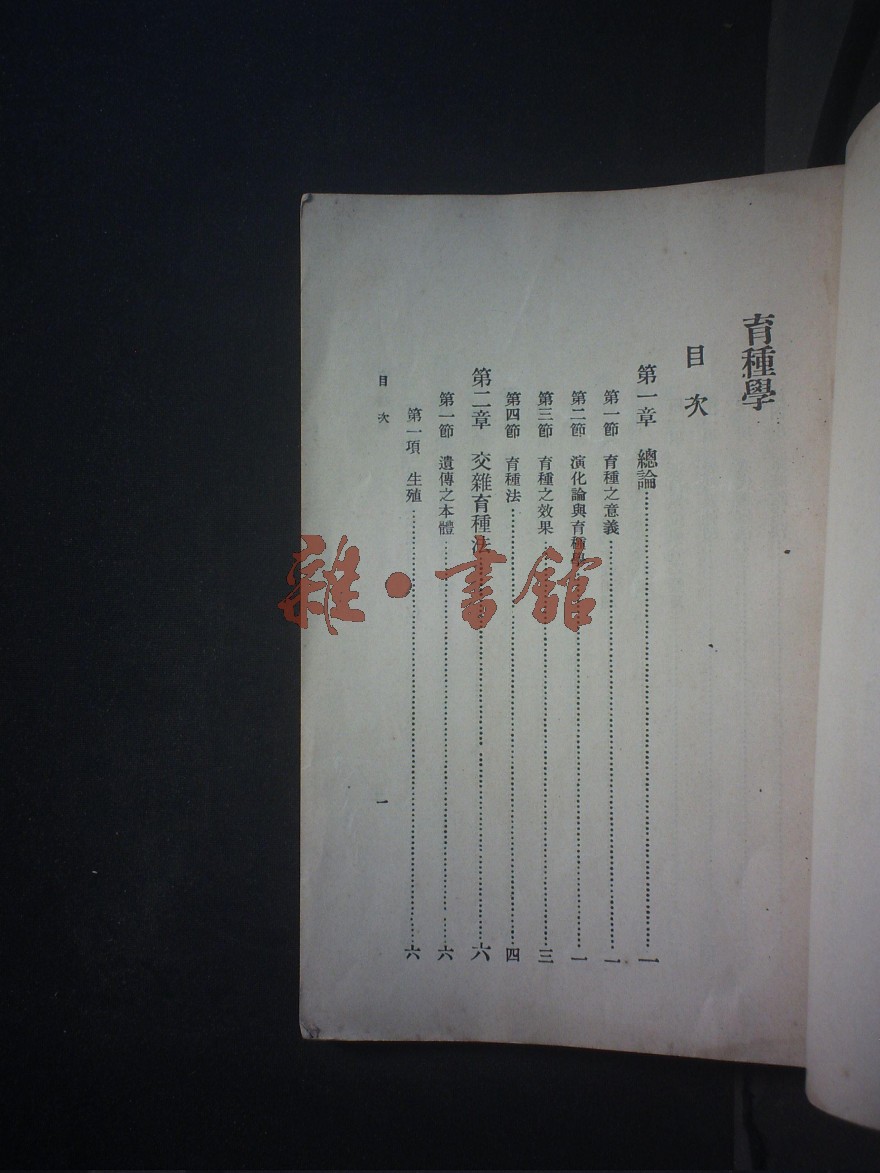 育種學
目次
第一章 總論……一
第一節 育種之意義……一
第二節 演化論與育種……一
第三節 育種之效果……三
第四節 育種法……四
第二章 交雜育種法……六
第一節 遺傳之本體……六
第一項 生殖……六
目次 一
雜·書館